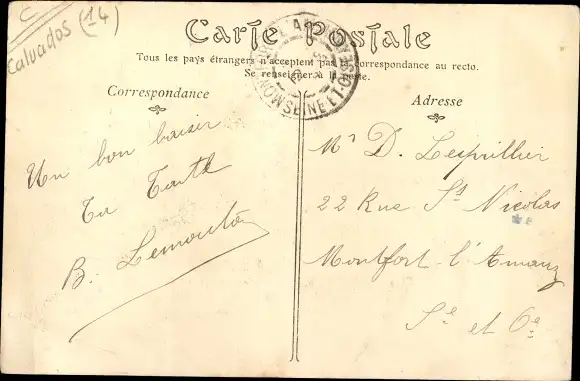 Calvados (14)
Carte Postale
Tous les pays étrangers n'acceptent pas la correspondance au recto.
Se renseigner à la poste.
Correspondance
Un bon baiser
Ta Tante
B. Lemonto
Adresse
Mr D. Lespillier
22 Rue St Nicolas
Montfort-l'Amaury
Se et Oe
SEINE-ET-OISE